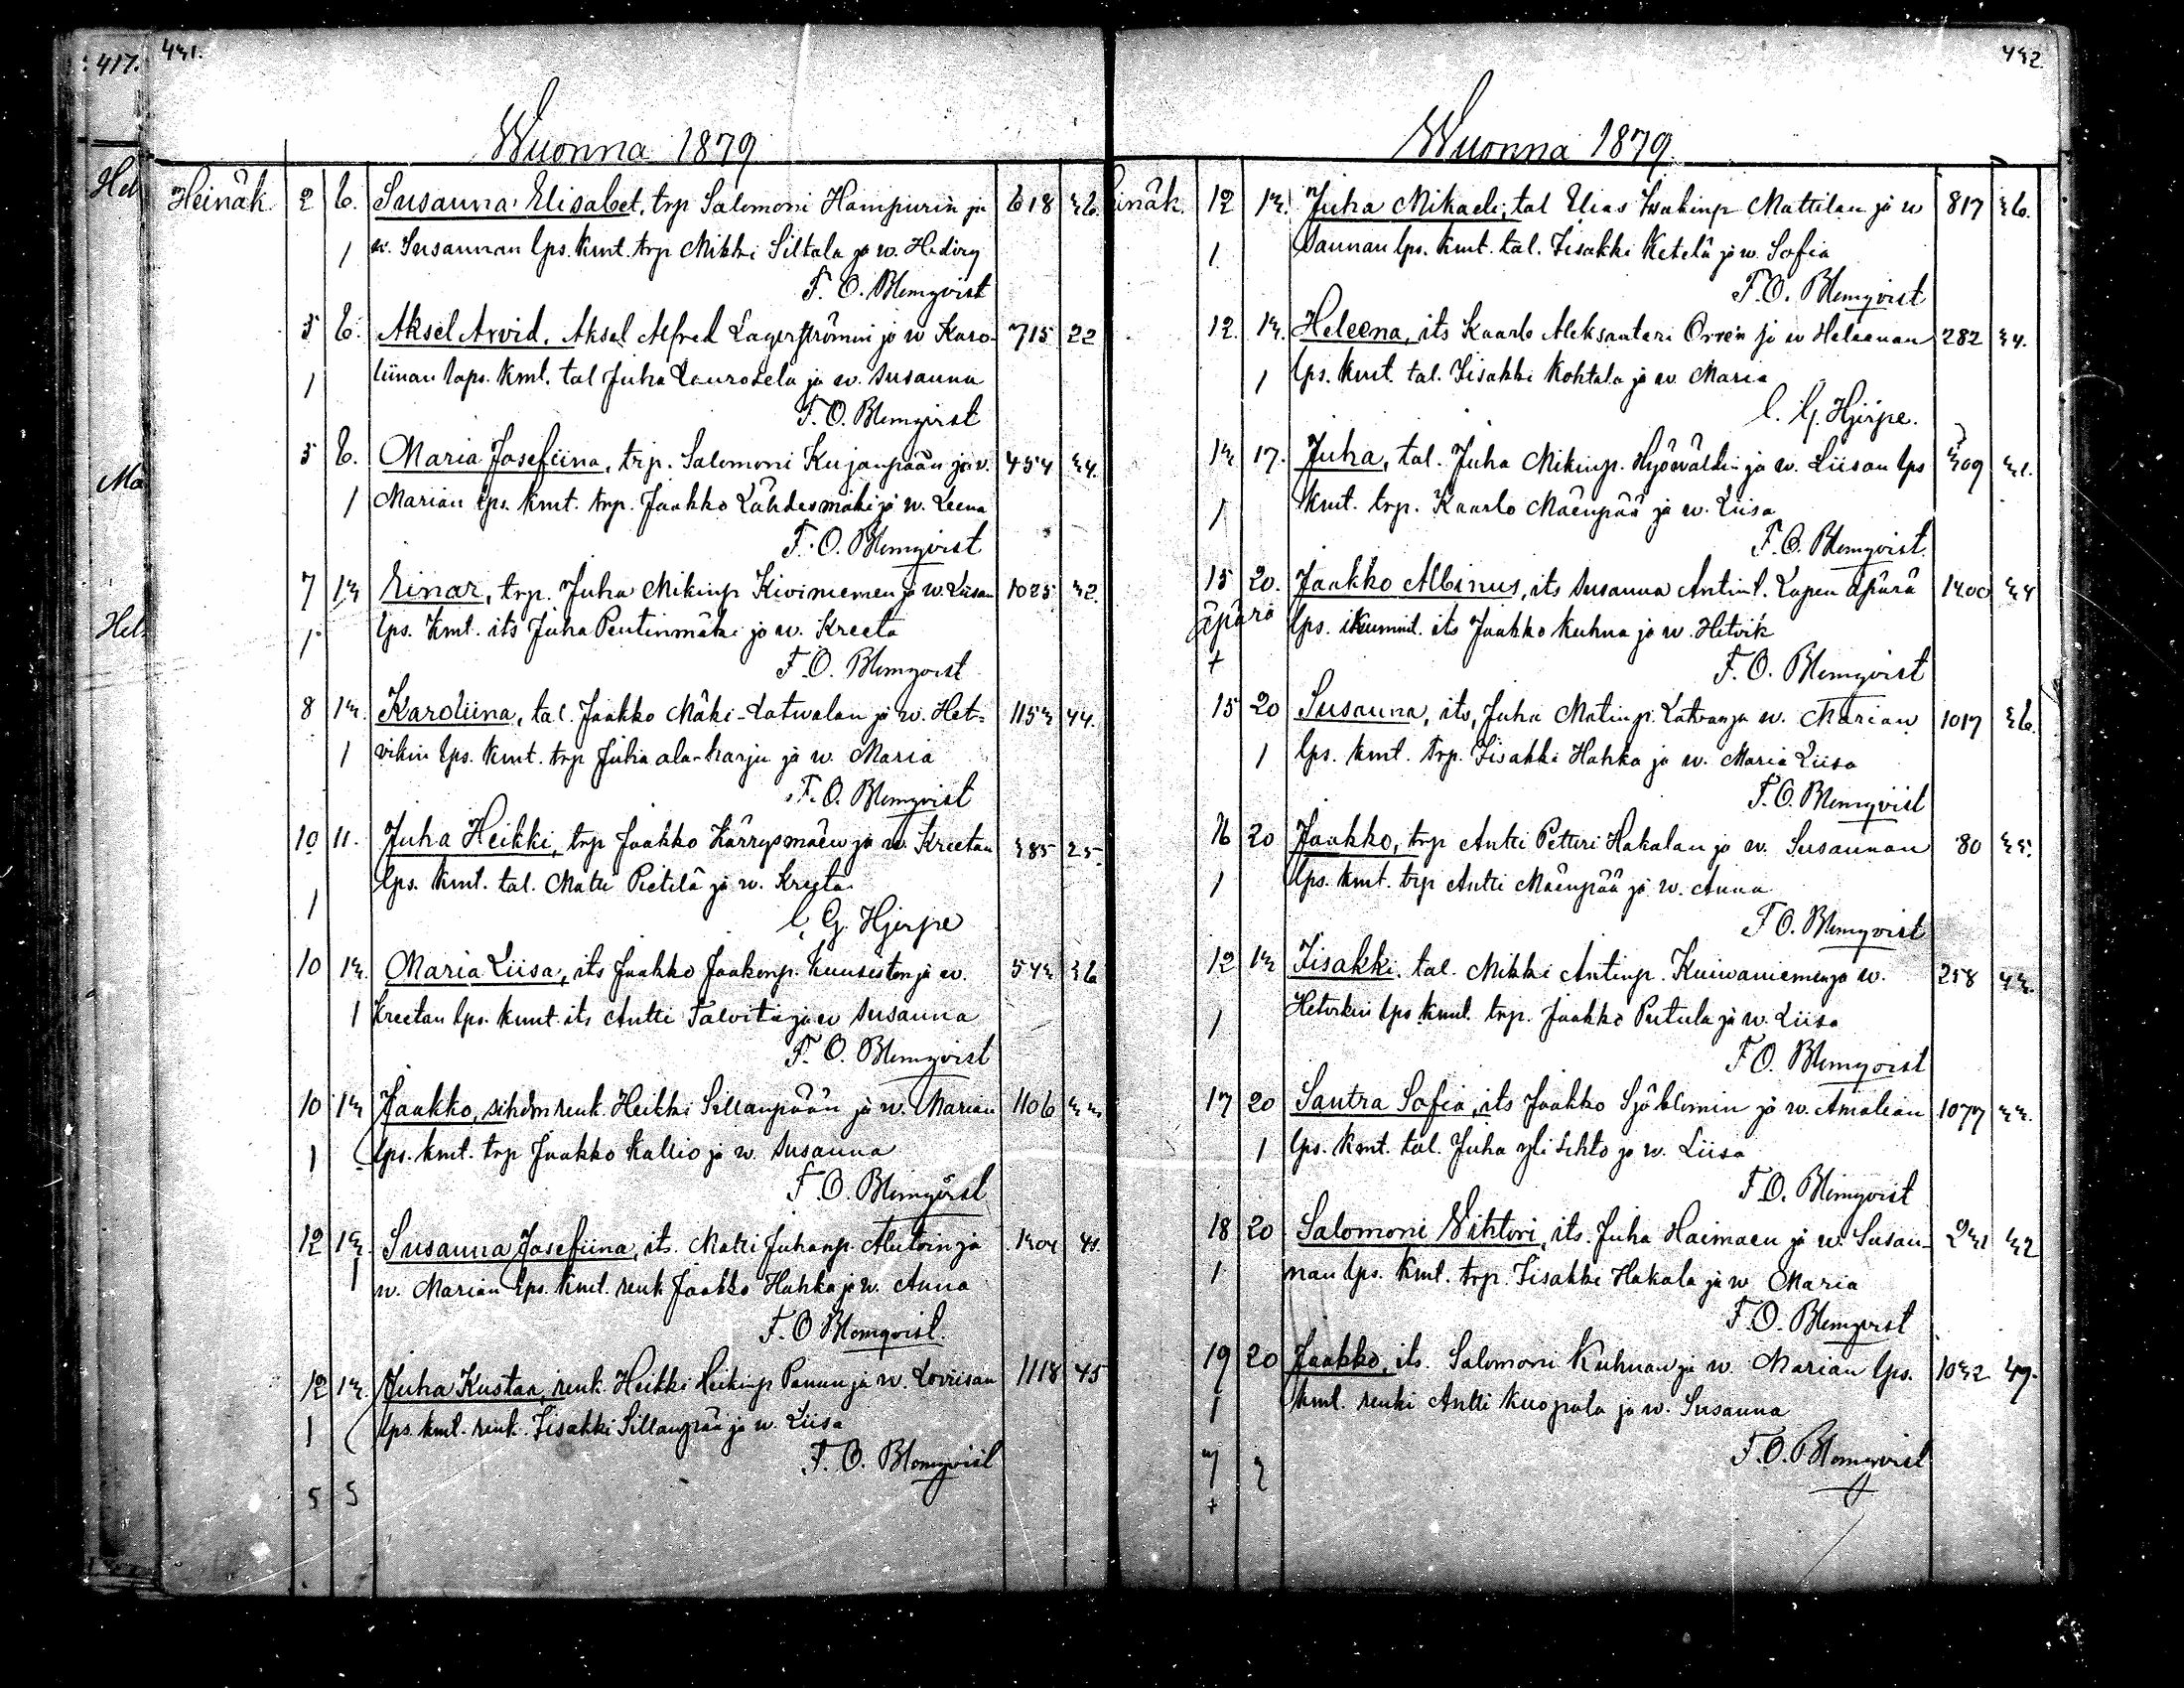 417.
431.
Wuonna 1879
Heinäk. 2 6. Susanna Elisabet, trp Salomoni Hampurin ja 618 36.
1 w. Susannan lps. kmt. trp Mikki Siltala ja w. Hedvig
F. O. Blomqvist
5 6. Aksel Arvid, Aksel Alfred Lagerströmin ja w Karo- 715 22
1 liinan laps. kmt. tal Juha Laurosela ja w. Susanna
F. O. Blomqvist
5 6. Maria Josefiina, trp. Salomoni Kujanpään ja w. 454 34.
1 Marian lps. kmt. trp. Jaakko Lähdesmäki ja w. Leena
F. O. Blomqvist
7 13 Einar, trp. Juha Mikinp Kiviniemen ja w. Liisan 1025 32.
1 lps. kmt. its Juha Pentinmäki ja w. Kreeta
F. O. Blomqvist
8 13. Karoliina, tal. Jaakko Mäki-Latwalan ja w. Het- 1153 44.
1 vikin lps. kmt. trp Juha ala-harju ja w. Maria
F. O. Blomqvist
10 11. Juha Heikki, trp Jaakko Kärrysmäen ja w. Kreetan 385 25.
1 lps. kmt. tal. Matti Pietilä ja w. Kreeta
C. G. Hjerpe
10 13. Maria Liisa, its Jaakko Jaakonp. Kuusiston ja w. 543 36
1 Kreetan lps. kmt. its Antti Talvitie ja w Susanna
F. O. Blomqvist
10 13 Jaakko, renk. Heikki Sillanpään ja w. Marian 1106 33
1 lps. kmt. trp Jaakko Kallio ja w. Susanna
F. O. Blomqvist
12 13. Susanna Josefiina, its. Matti Juhanp. ja 1304
1 w. Marian lps. kmt. renk Jaakko Hahka ja w. Anna
F. O Blomqvist.
12 13. Juha Kustaa, renk. Heikki Heikinp Panun ja w. Loviisan 1118 45
1 lps. kmt. renk. Iisakki Sillanpää ja w. Liisa
F. O. Blomqvist
5 5
432.
Wuonna 1879
inäk. 12 13. Juha Mikaeli, tal Elias Isakinp Mattilan ja w 817 36.
1 Sannan lps. kmt. tal. Iisakki Ketelä ja w. Sofia
F. O. Blomqvist
12. 13. Heleena, its Kaarlo Aleksanteri Orren ja w Heleenan 282 34.
1 lps. kmt. tal. Iisakki Kohtala ja w. Maria
C. G. Hjerpe.
13 17. Juha, tal. Juha Mikinp. Hyövältin ja w. Liisan lps 309 31.
1 kmt. trp. Kaarlo Mäenpää ja w. Liisa
F. O. Blomqvist.
15 20. Jaakko Albinus, its Susanna Antint. Lapen äpärä 1400 34
äpärä lps. kummit. its Jaakko Kuhna ja w. Hetvik
+ F. O. Blomqvist
15 20 Susanna, its, Juha Matinp. Latvan ja w. Marian 1017 36.
1 lps. kmt. trp. Iisakki Hahka ja w. Maria Liisa
F. O. Blomqvist
16 20 Jaakko, trp Antti Petteri Hakalan ja w. Susannan 80 35.
1 lps. kmt. trp Antti Mäenpää ja w. Anna
F O. Blomqvist
12 13 Iisakki. tal. Mikki Antinp. Kuiwaniemen ja w. 258 43.
1 Hetvikin lps kmt. trp. Jaakko Peitula ja w. Liisa
F O. Blomqvist
17 20 Santra Sofia, its Jaakko Sjöblomin ja w. Amalian 1077 33.
1 lps. kmt. tal. Juha yli Lehto ja w. Liisa
F. O. Blomqvist
18 20 Salomoni Vihtori, its. Juha Haimaen ja w. Susan- 231 32
1 nan lps. kmt. trp. Iisakki Hakala ja w Maria
F. O. Blomqvist
19 20 Jaakko, its. Salomoni Kuhnan ja w. Marian lps. 1032 49.
1 kmt. renki Antti Kuopala ja w. Susanna
F. O. Blomqvist
7 3
+